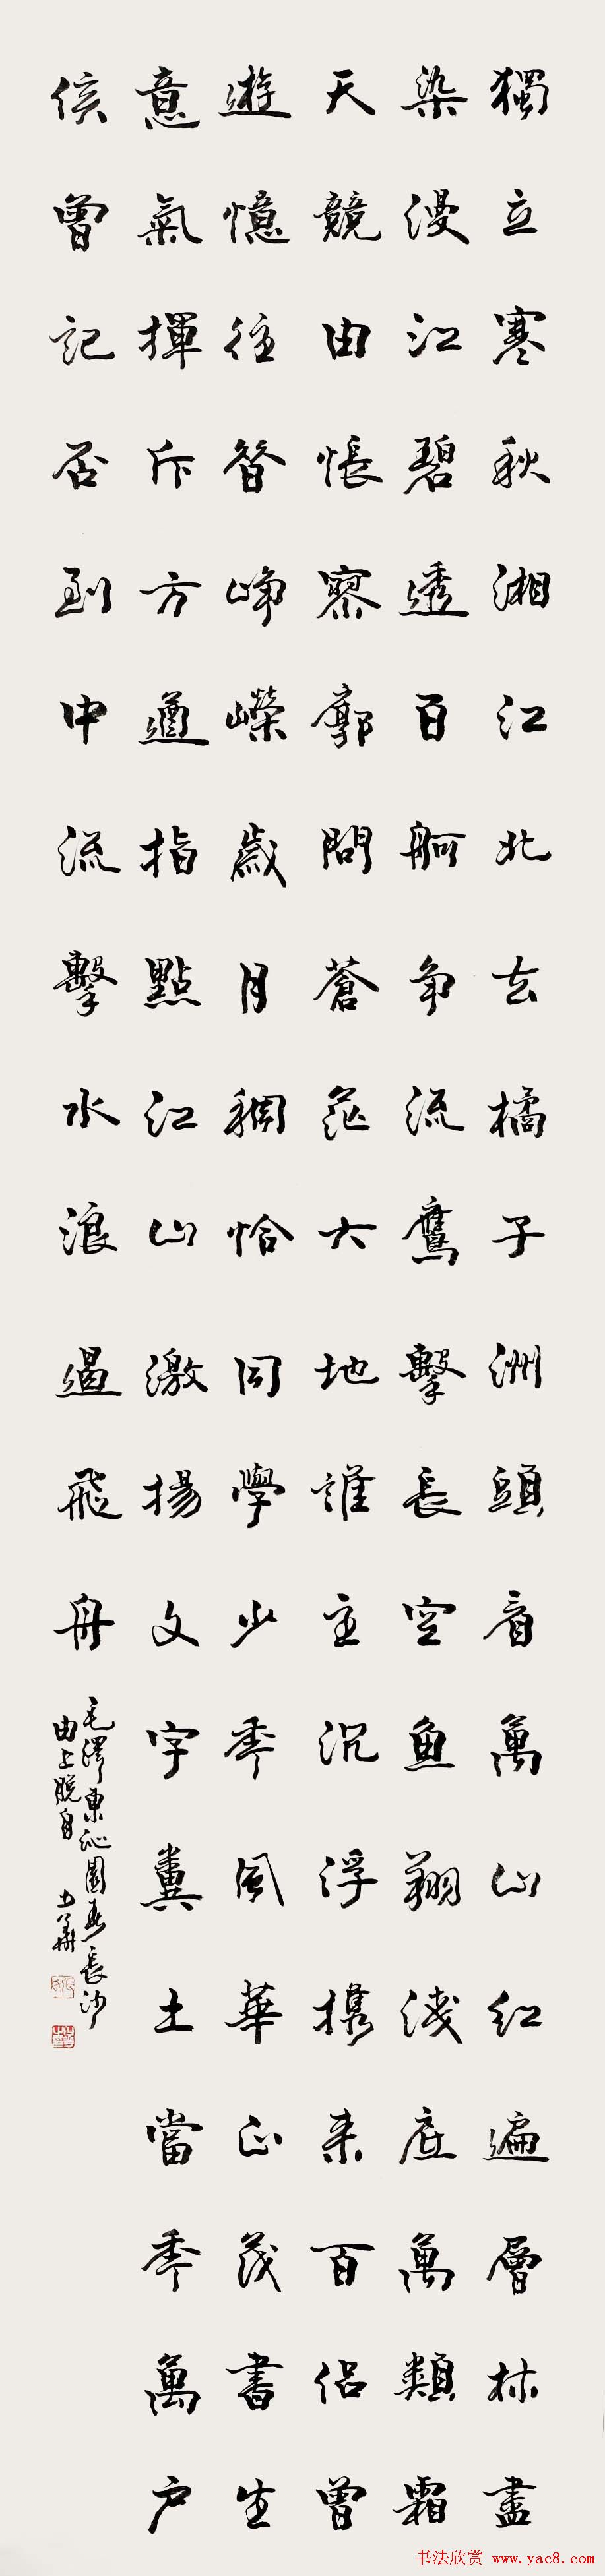 獨立寒秋湘江北去橘子洲頭看萬山红遍層林盡
染漫江碧透百舸争流鷹擊長空魚翔淺底萬類霜
天競由悵寥廓問蒼茫大地誰主沉浮携来百侣曾
遊憶往昔崢嶸歲月稠恰同學少秊風華正茂書生
意氣揮斥方遒指點江山激揚文字糞土當秊萬户
侯曾記否到中流擊水浪遏飛舟
毛澤東沁園春長沙
由上脱自
书法欣赏 www.yac8.com